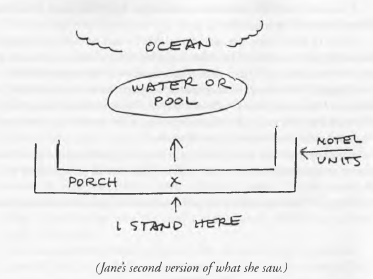 OCEAN
WATER OR
POOL
MOTEL
UNITS
PORCH X
I STAND HERE
(Jane's second version of what she saw.)